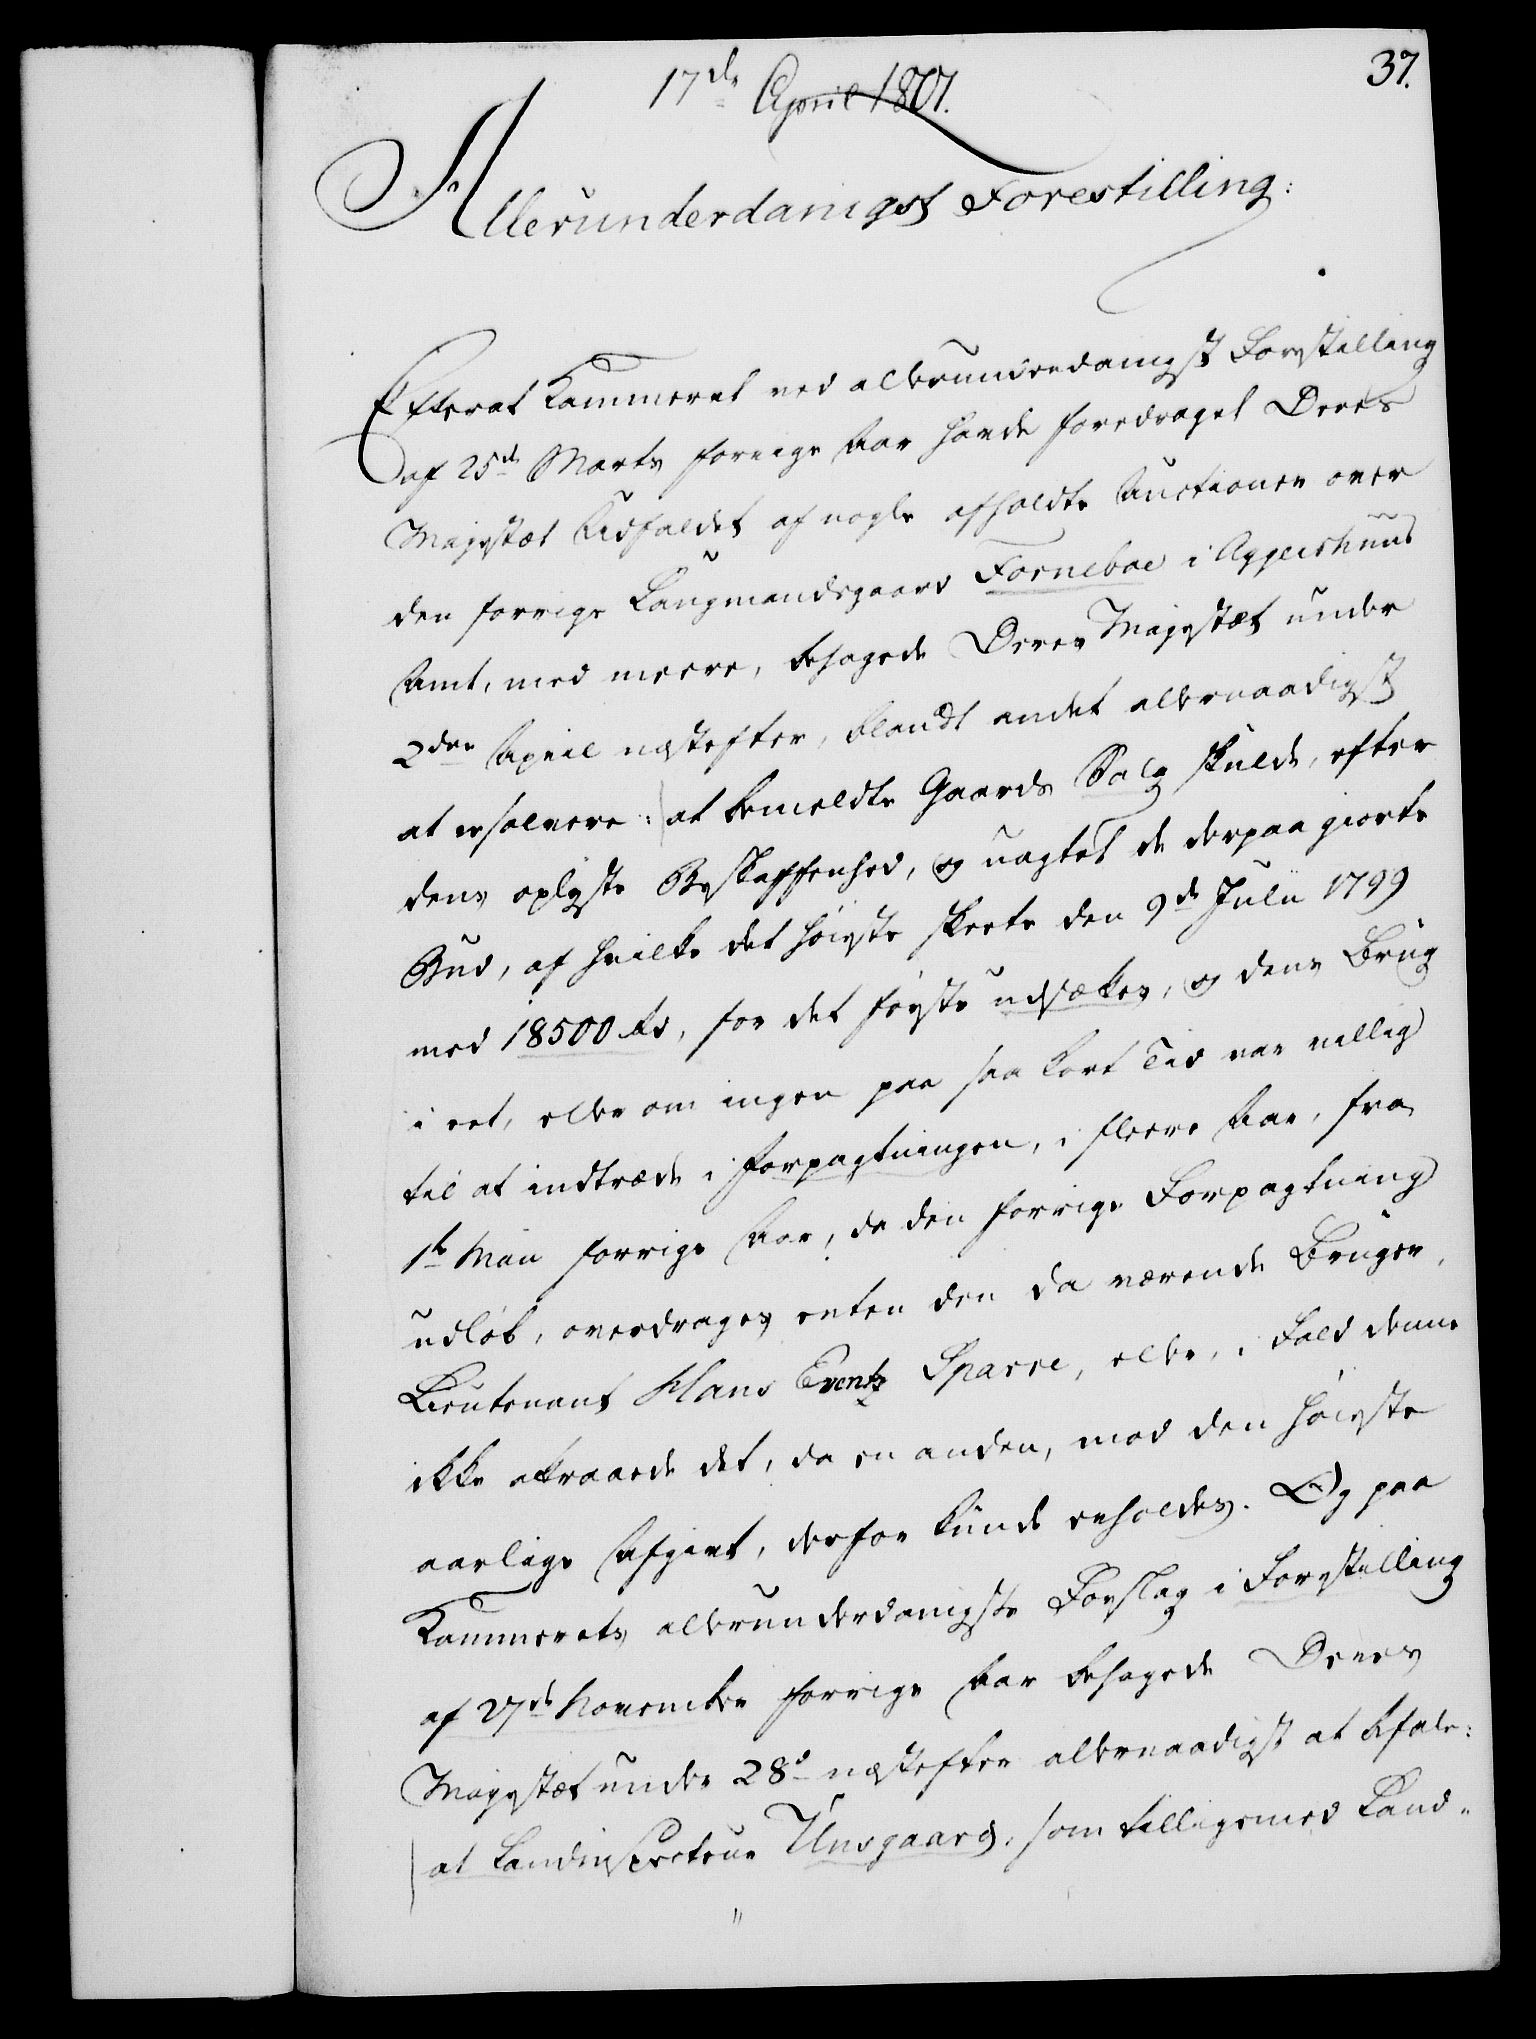 37.
17de April 1801.
Allerunderdanigst Forestilling:
Efterat Kammeret ved allerunderdanigst Forestilling
af 25de Marts forrige Aar havde foredraget Deres
Majestæt Udfaldet af nogle afholdte Auctioner over
den forrige Laugmandsgaard Forneboe i Aggershuus
Amt, med meere, behagede Deres Majestæt under
2den April næstefter, blandt andet allernaadigst
at resolvere: at bemeldte Gaards Salg skulde, efter
dens oplyste Beskaffenhed, og uagtet de derpaa giorte
Bud, af hvilke det høieste skeete den 9de Julii 1799
med 18500 Rd, for det første udsættes, og dens Brug
i eet, eller om ingen paa saa kort Tid var villig
til at indtræde i Forpagtningen, i fleere Aar, fra
1te Maii forrige Aar, da den forrige Forpagtning
udløb, overdrages enten den da værende Bruger,
Lieutenant Hans Eventz Sparre, eller, i Fald denne
ikke attraaede det, da en anden, mod den høieste
aarlige Afgivt, derfor kunde erholdes. Og paa
Kammerets allerunderdanigste Forslag i Forestilling
af 27de November forrige Aar behagede Deres
Majestæt under 28d næstefter allernaadigst at befale:
at Landinspecteur Unsgaard, som tilligemed Land-